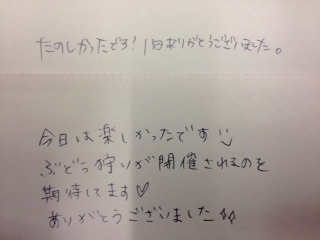 たのしかったです！1日ありがとうございました。
今日は楽しかったです
ぶどう狩りが開催されるのを
期待してます♡
ありがとうございました